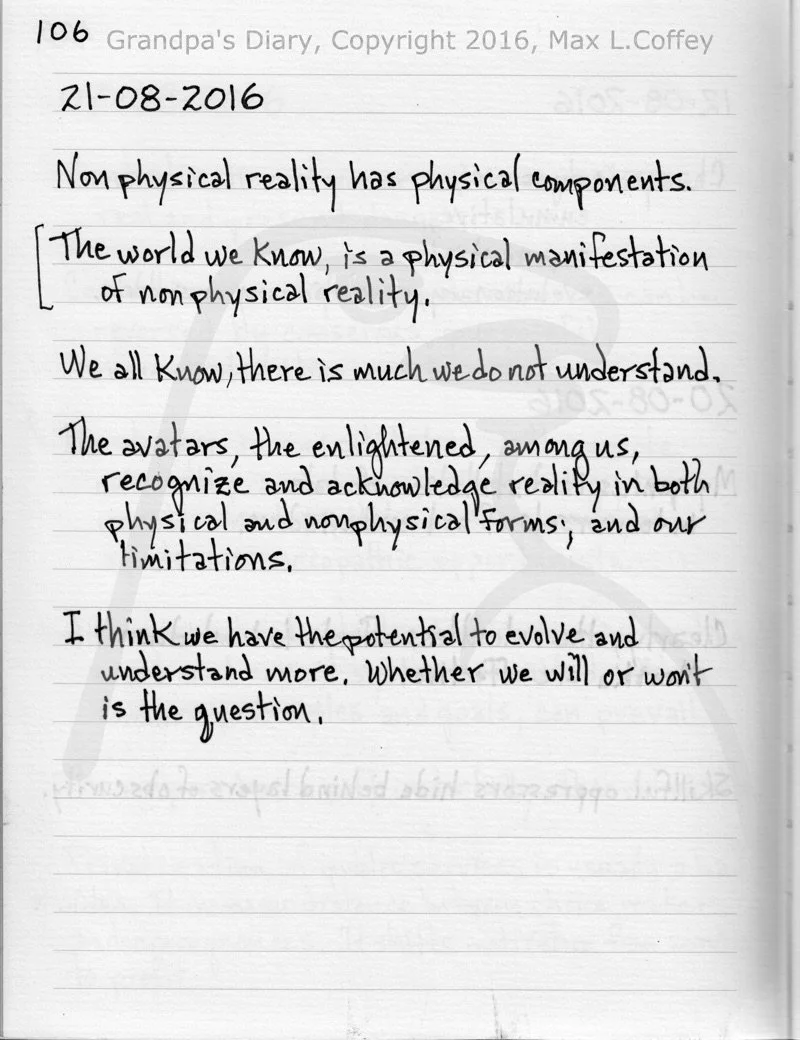 106 Grandpa's Diary, Copyright 2016, Max L.Coffey
21-08-2016
Non physical reality has physical components.
[The world we know, is a physical manifestation
of non physical reality.
We all know, there is much we do not understand.
The avatars, the enlightened, among us,
recognize and acknowledge reality in both
physical and nonphysical forms; and our
limitations.
I think we have the potential to evolve and
understand more. Whether we will or won't
is the question.
Skillful oppressors hide behind layers of obscurity.